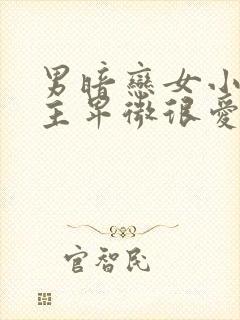 男暗戀女小
主卑微很愛
官智民